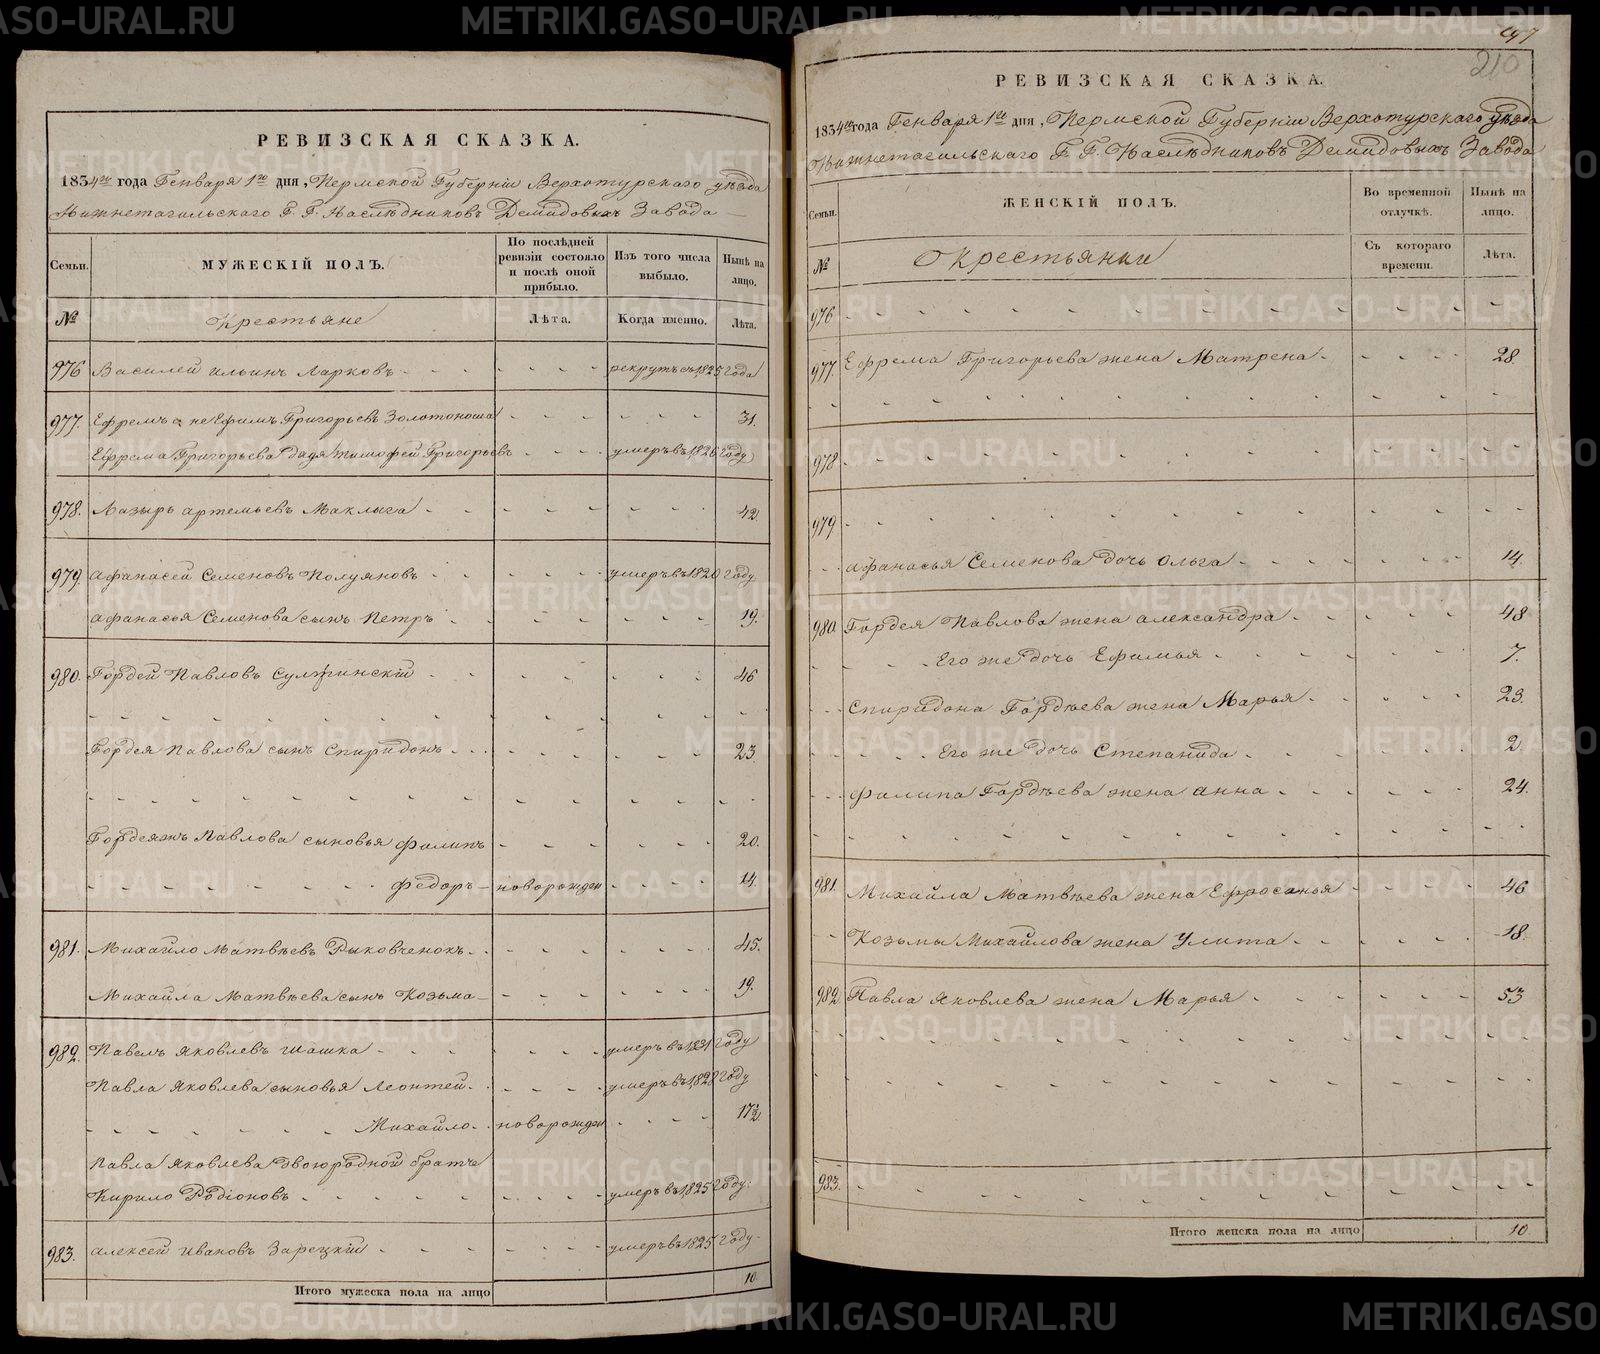 РЕВИЗСКАЯ СКАЗКА.
1834го года Генваря 1го дня, Пермской Губерніи Верхотурскаго уѣзда
Нижнетагильскаго Г. Г. Наслѣдниковъ Демидовыхъ Завода
Семьи. МУЖЕСКІЙ ПОЛЪ. По послѣдней ревизіи состояло и послѣ оной прибыло. Изъ того числа выбыло. Нынѣ на лицо.
№ Крестьяне Лѣта. Когда именно. Лѣта.
976 Василей Ильинъ Ларковъ рекрутъ съ 1825 года
977. Ефремъ а не Ефимъ Григорьевъ Золотоноша 31.
Ефрема Григорьева дядя Тимофей Григорьевъ умеръ въ 1826 году
978. Лазырь Артемьевъ Маклыга 42
979. Афанасей Семеновъ Полуяновъ умеръ въ 1820 году
Афанасья Семенова сынъ Петръ 19.
980. Гордей Павловъ 46
Гордея Павлова сынъ Спиридонъ 23
Гордея жъ Павлова сыновья Филипъ 20.
Федоръ новорожден 14.
981. Михайло Матвѣевъ Рыковченокъ 45.
Михайла Матвѣева сынъ Козьма 19.
982. Павелъ Яковлевъ Шашка умеръ въ 1831 году
Павла Яковлева сыновья Леонтей умеръ въ 1828 году
Михайло новорожден 17½
Павла Яковлева двоюродной братъ
Кирило Родіоновъ умеръ въ 1825 году.
983. Алексей Ивановъ Зарецкій умеръ въ 1825 году.
Итого мужеска пола на лицо 10
210
РЕВИЗСКАЯ СКАЗКА.
1834го года Генваря 1го дня, Пермской Губерніи Верхотурскаго уѣзда
Нижнетагильскаго Г. Г. Наслѣдниковъ Демидовыхъ Завода
Семьи. ЖЕНСКІЙ ПОЛЪ. Во временной отлучкѣ. Нынѣ на лицо.
№ Крестьянки Съ котораго времени. Лѣта.
976
977. Ефрема Григорьева жена Матрена 28
978
979
Афанасья Семенова дочь Ольга 14.
980. Гордея Павлова жена Александра 48
Его же дочь Ефимья 7.
Спиридона Гордѣева жена Марья 23.
Его же дочь Степанида 2
Филипа Гордѣева жена Анна 24.
981. Михайла Матвѣева жена Ефросинья 46
Козьмы Михайлова жена Улита 18.
982 Павла Яковлева жена Марья 53
983.
Итого женска пола на лицо 10
METRIKI.GASO-URAL.RU